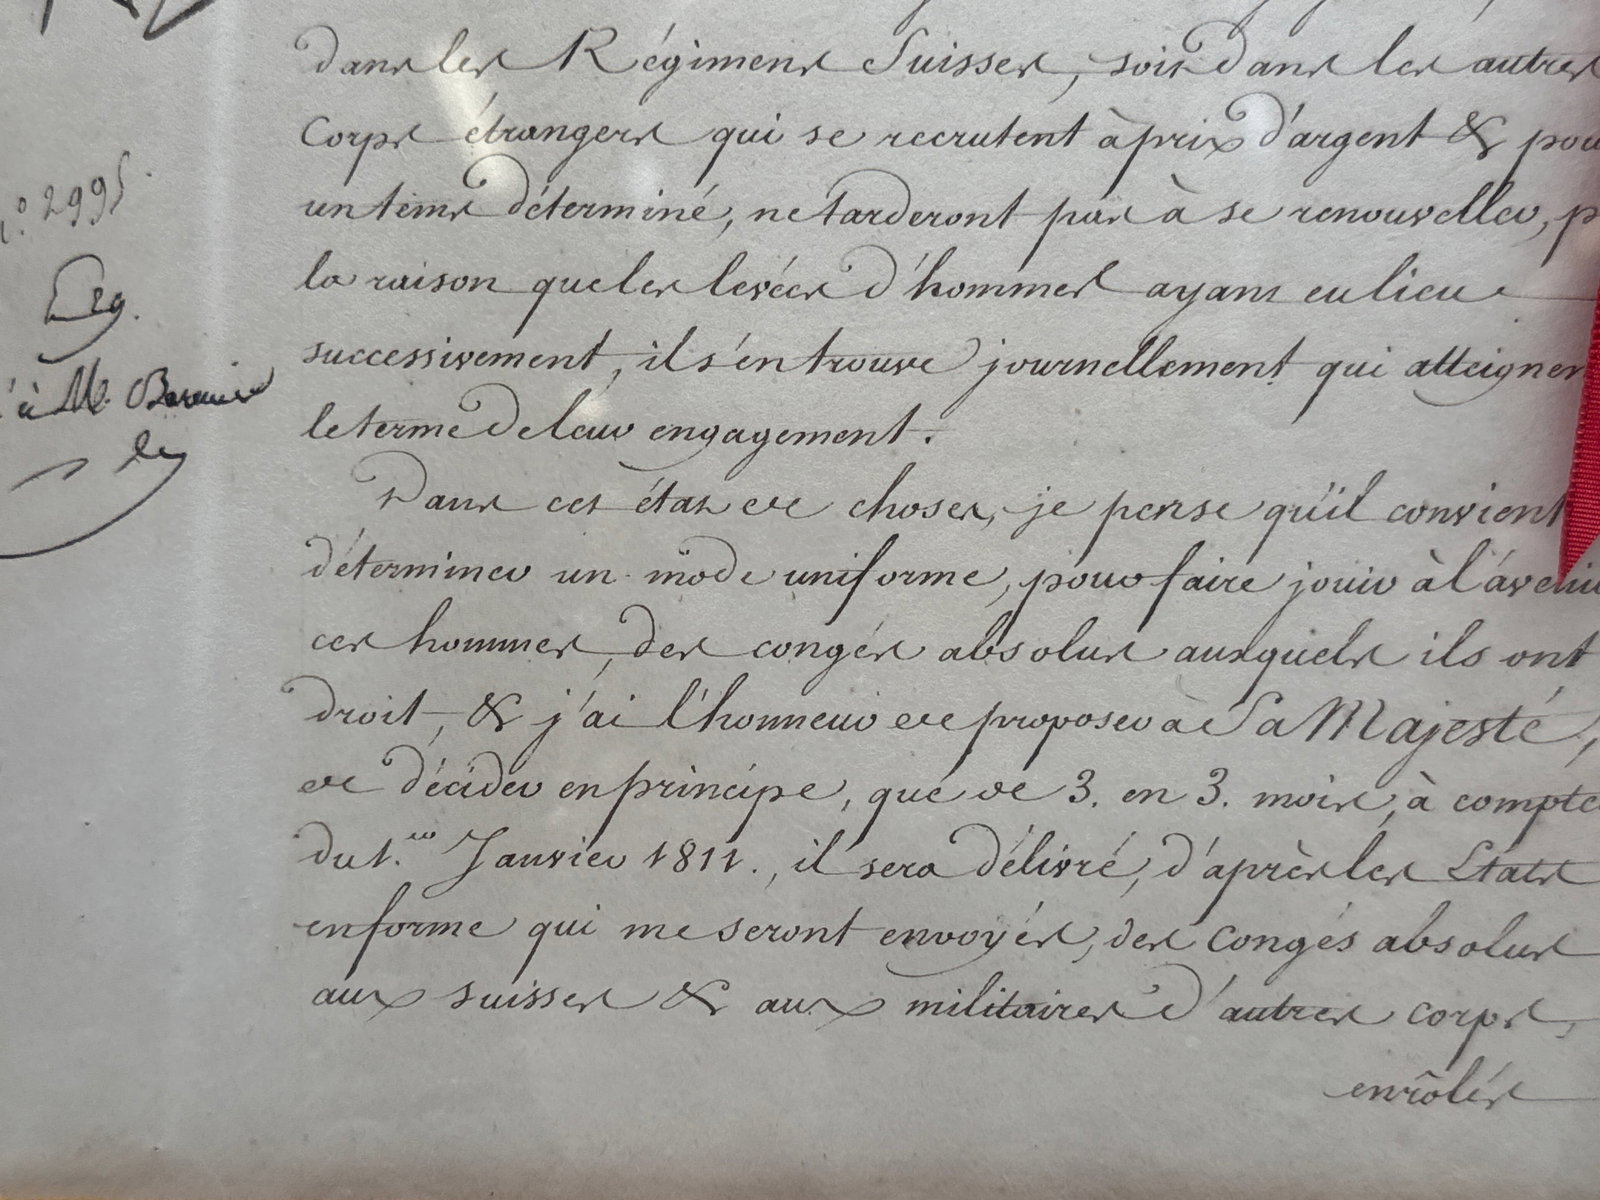 dans les Régimens Suisses, soit dans les autres
Corps étrangers qui se recrutent à prix d'argent & pou
un tems déterminé, ne tarderont pas à se renouveller, p
la raison que les levées d'hommes ayant eu lieu
successivement, il s'en trouve journellement qui atteignen
le terme de leur engagement.
Dans cet état de choses, je pense qu'il convient
déterminer un mode uniforme, pour faire jouir à l'avenir
ces hommes, des congés absolus auxquels ils ont
droit, & j'ai l'honneur de proposer à Sa Majesté,
de décider en principe, que de 3. en 3. mois, à compte
du 1.er Janvier 1811., il sera délivré, d'après les Etats
en forme qui me seront envoyés, des Congés absolus
aux suisses & aux militaires d'autres corps,
enrôlés
n.º 2995.
à M.